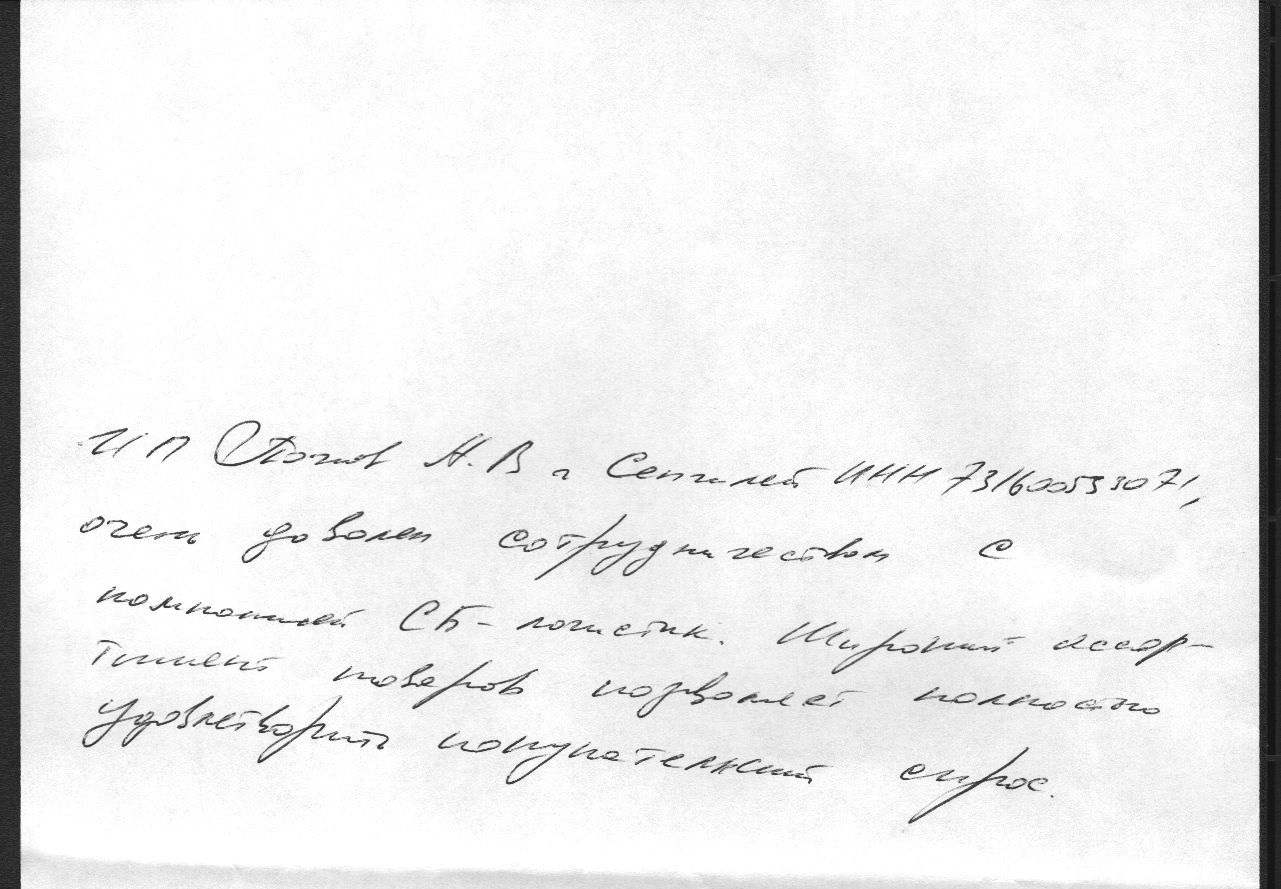 ИП Н. В г Сенгилей ИНН 731600533071,
очень доволен сотрудничеством с
компанией СБ-логистик. Широкий ассор-
тимент товаров позволяет полностью
удовлетворить покупательский спрос.